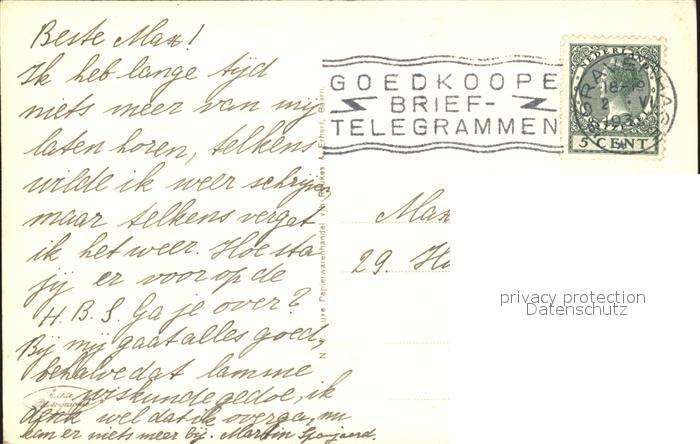 Beste Max!
Ik heb lange tijd
niets meer van mij
laten horen, telkens
wilde ik weer schrijven
maar telkens vergat
ik het weer. Hoe sta
jij er voor op de
H.B.S. Ga je over?
Bij mij gaat alles goed,
behalve dat lamme
wiskundegedoe, ik
denk wel dat ik overga, nu
kan er niets meer bij. Martin
GOEDKOOPE
BRIEF-
TELEGRAMMEN
NEDERLAND
'S GRAVENHAGE
193
5 CENT
Max
29. Ho
privacy protection
Datenschutz